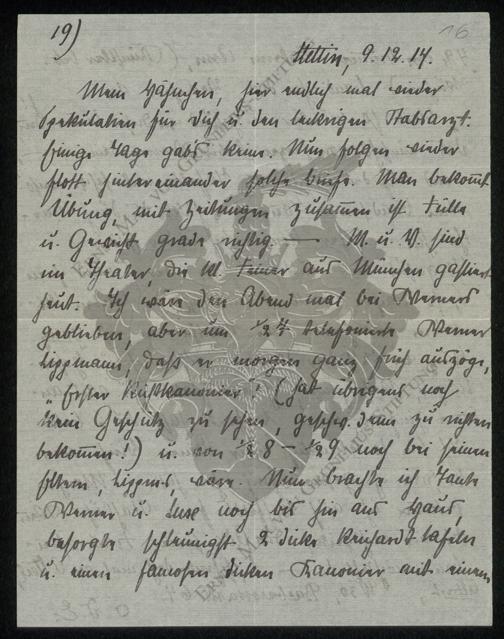 19)
16
Stettin, 9.12.14.
Mein Hähnchen, hier endlich mal wieder
Spekulatien für Dich u. den leckrigen Stabsarzt.
Einige Tage gabs keine. Nun folgen wieder
flott hintereinander solche Briefe. Man bekommt
Übung, mit Zeitungen zusammen ist Fülle
u. Gewicht grade richtig. — M. u. W. sind
im Theater, die W. aus München gastiert
heut. Ich wäre den Abend mal bei Werners
geblieben, aber um ½ telefonierte Werner
Lippmann, daß er morgen ganz früh auszöge,
„Erster Richtkanonier" (hat übrigens noch
kein Geschütz zu sehen, geschw. denn zu richten
bekommen!) u. von ½ 8 – ½ 9 noch bei seinen
Eltern, Lippms, wäre. Nun brachte ich Tante
Werner u. noch bis hin ans Haus,
besorgte schleunigst 2 dicke Reichardt tafeln
u. einen famosen dicken Kanonier mit einem